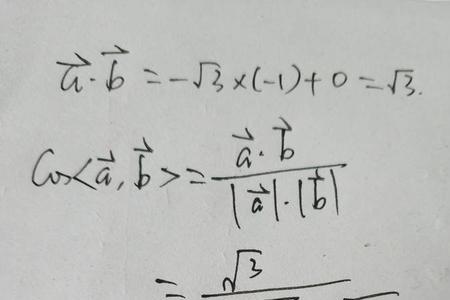 $\vec{a} \cdot \vec{b} = -\sqrt{3} \times (-1) + 0 = \sqrt{3}.$
$\cos<\vec{a}, \vec{b}> = \frac{\vec{a} \cdot \vec{b}}{|\vec{a}| \cdot |\vec{b}|}$
$= \frac{\sqrt{3}}{}$